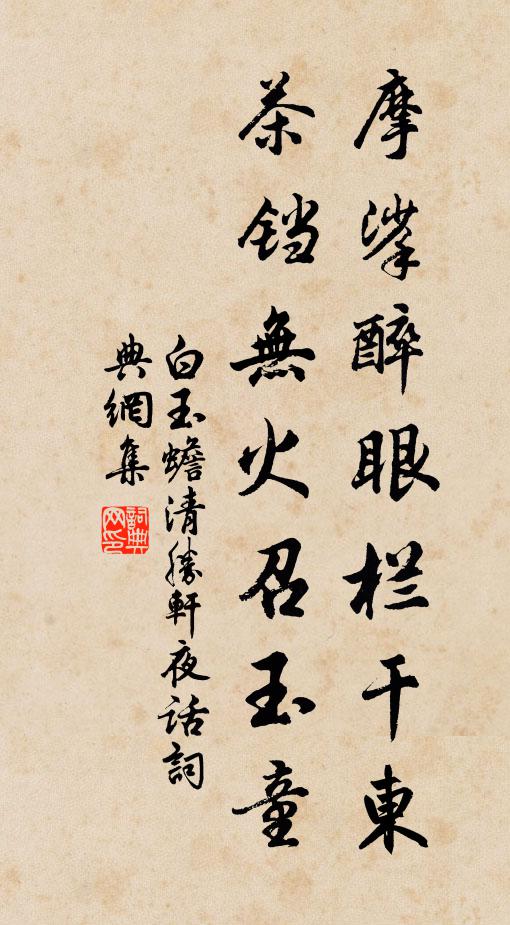 摩挲醉眼栏干東
茶铛無火召玉童
白玉蟾清勝軒夜话詞
典網集
詞典网印